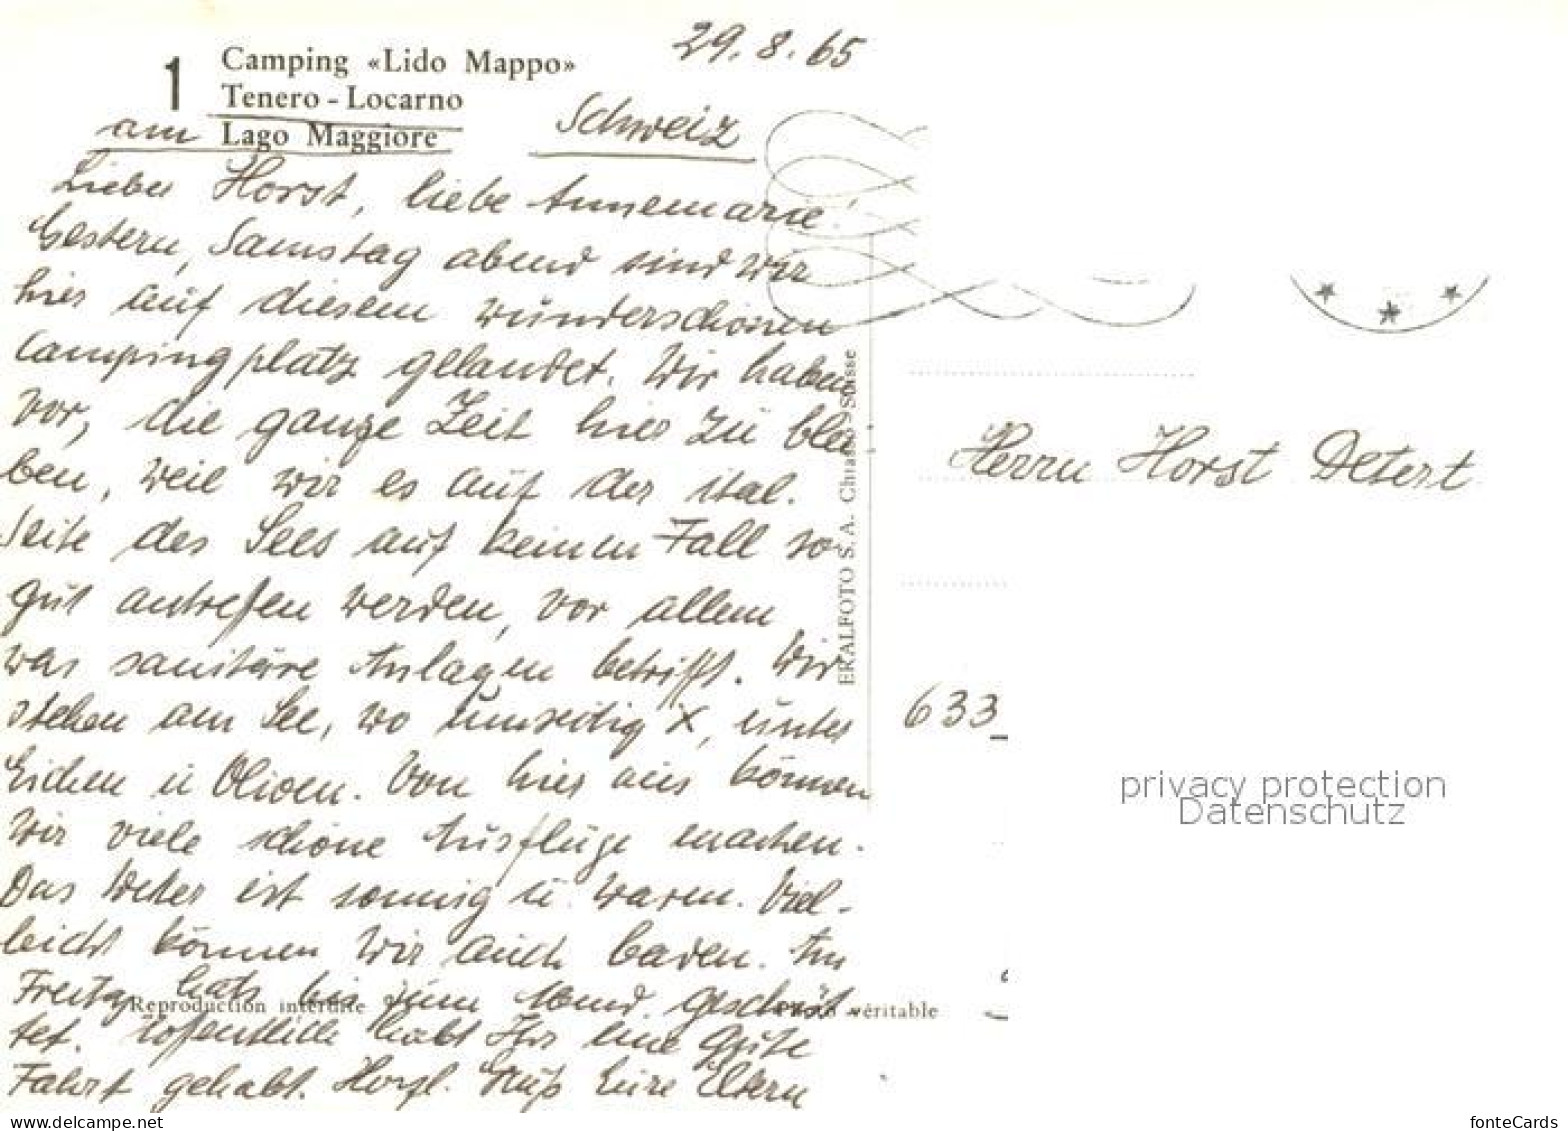 29.8.65
1
Camping «Lido Mappo»
Tenero - Locarno
am Lago Maggiore
Schweiz
Lieber Horst, liebe Annemarie!
Gestern, Samstag abend sind wir
hier auf diesem wunderschönen
Campingplatz gelandet. Wir haben
vor, die ganze Zeit hier zu blei-
ben, weil wir es auf der ital.
Seite des Sees auf keinen Fall so
gut antreffen werden, vor allem
was sanitäre Anlagen betrifft. Wir
stehen am See, wo umseitig X, unter
Eichen u Oliven. Von hier aus können
wir viele schöne Ausflüge machen.
Das Wetter ist sonnig u. warm. Viel-
leicht können wir auch baden. Am
Freitag hats bis zum Abend geschüt-
tet. Hoffentlich habt Ihr eine gute
Fahrt gehabt. Herzl. Gruß Eure Eltern
Reproduction interdite
Photo véritable
ERALFOTO S. A. Chiasso 9 Suisse
Herrn Horst Detert
633
privacy protection
Datenschutz
www.delcampe.net
fonteCards